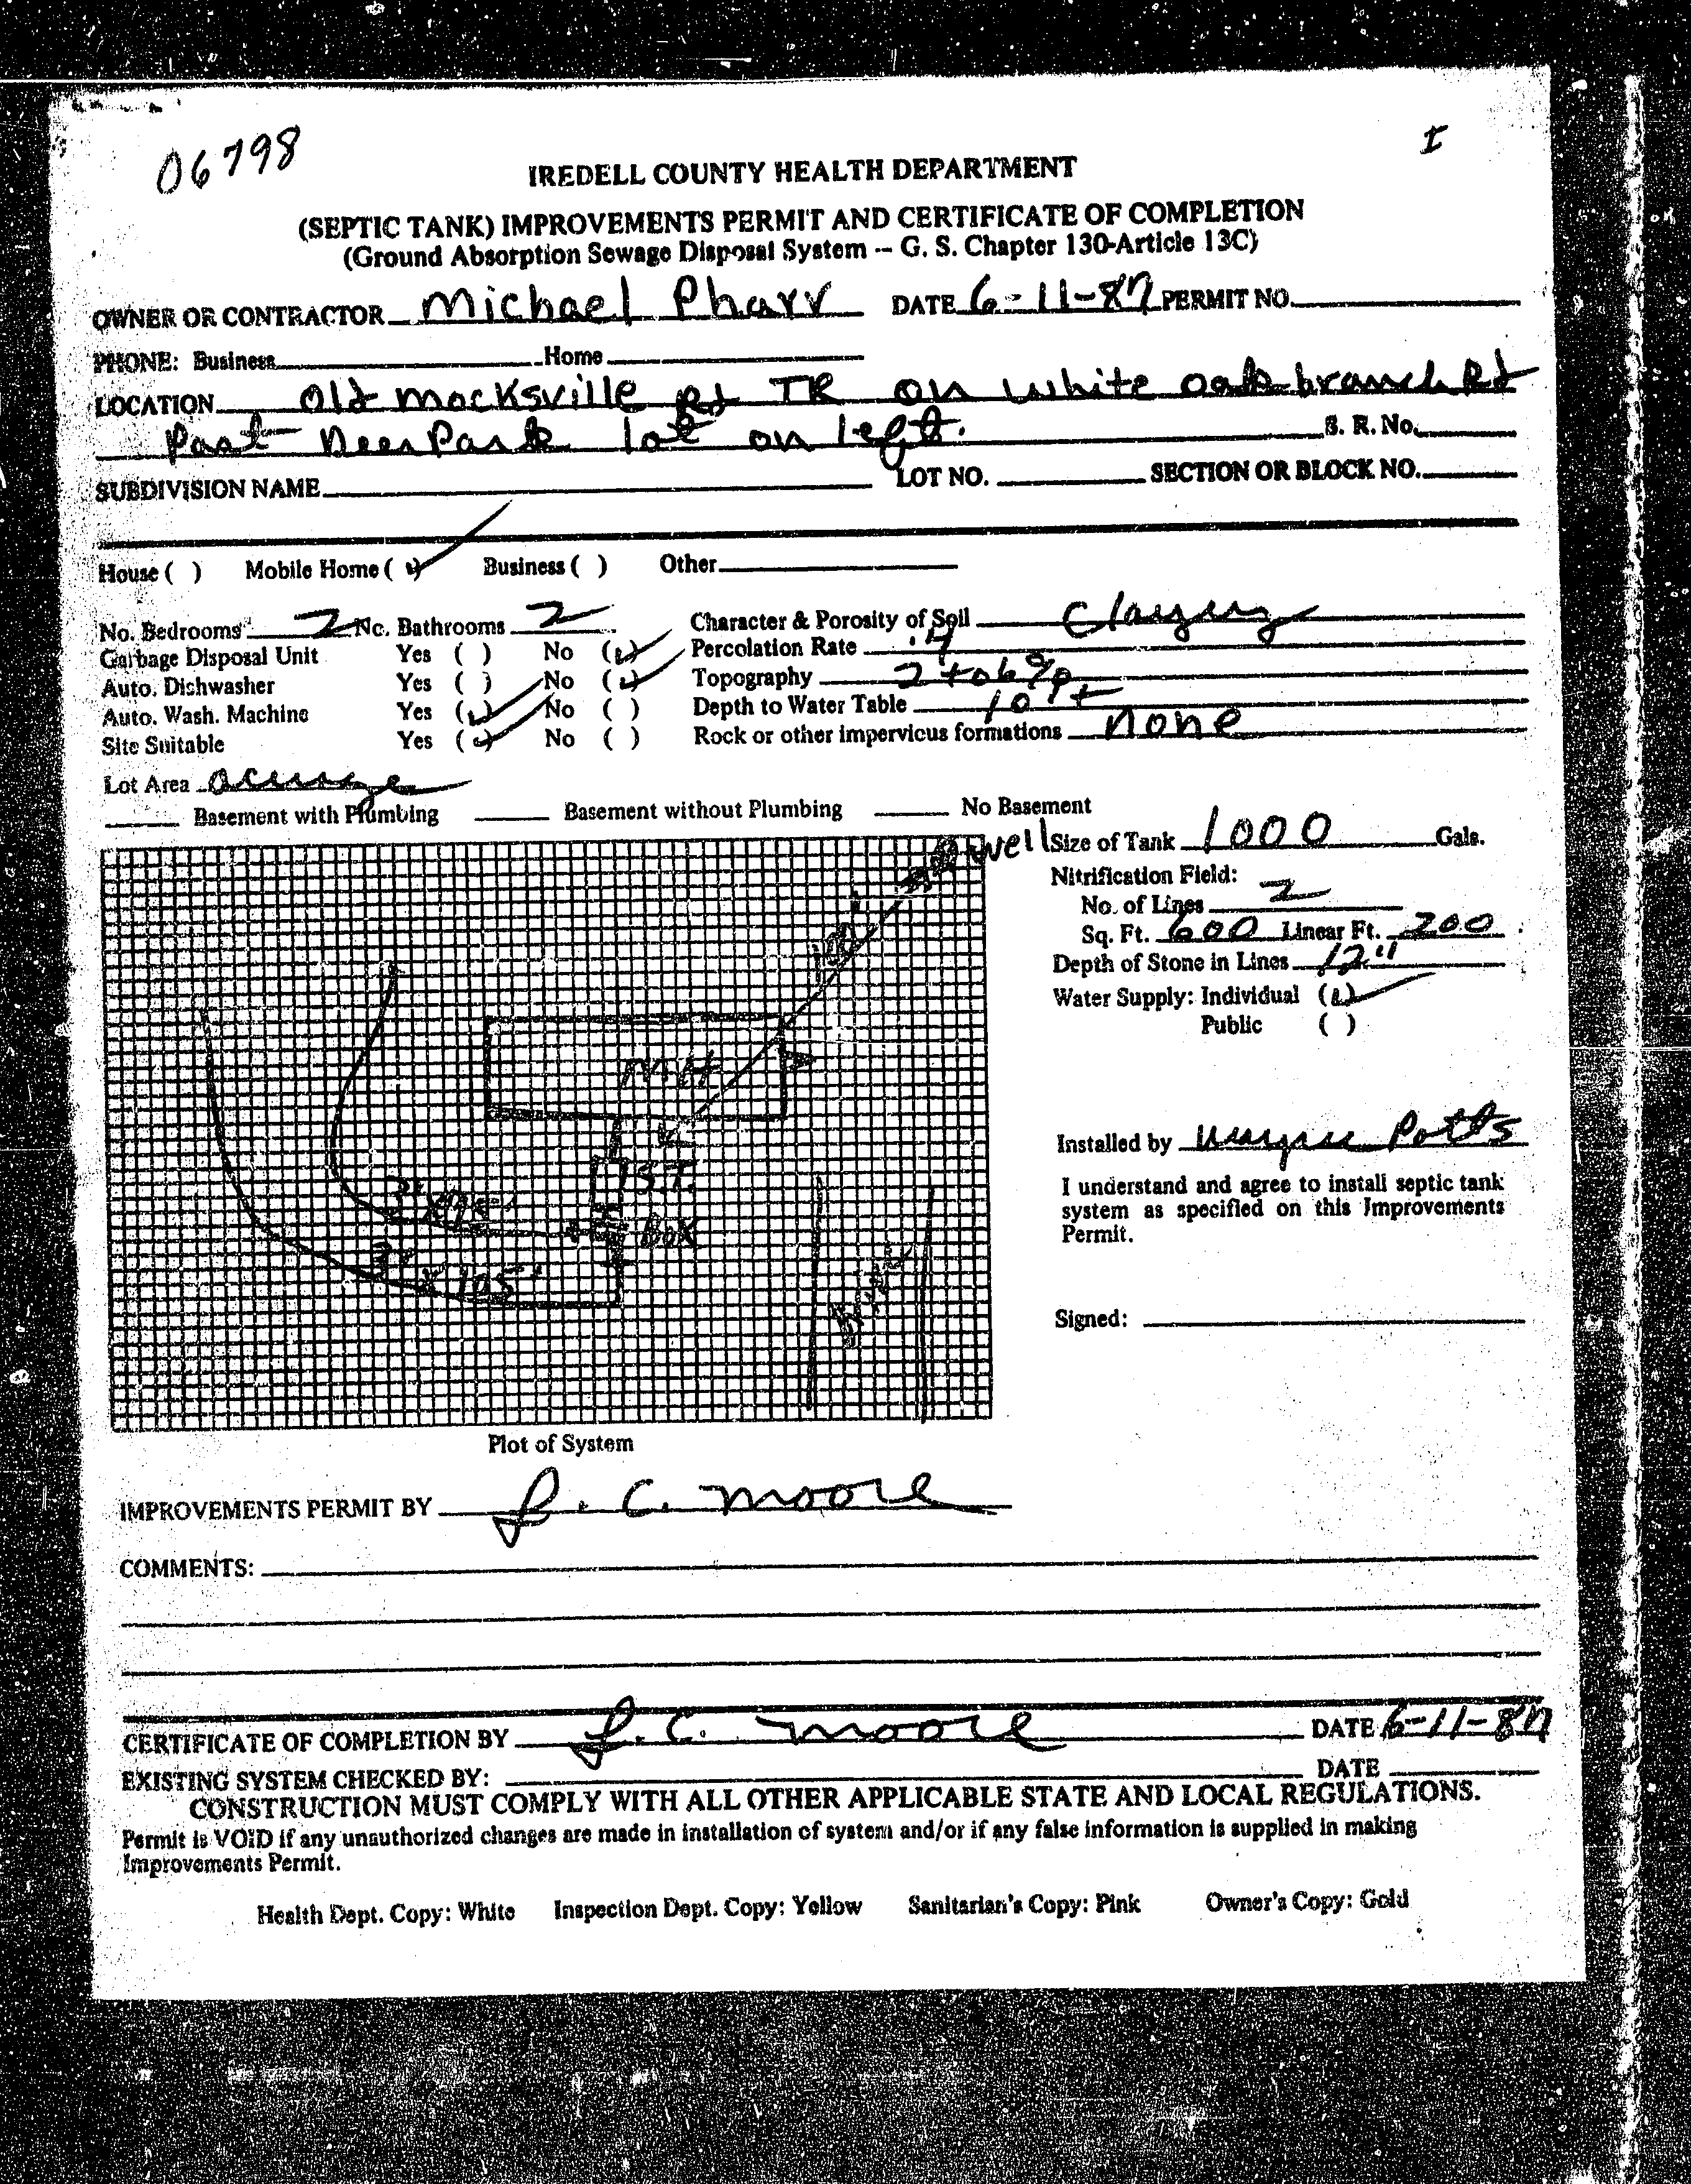 06798
I
IREDELL COUNTY HEALTH DEPARTMENT
(SEPTIC TANK) IMPROVEMENTS PERMIT AND CERTIFICATE OF COMPLETION
(Ground Absorption Sewage Disposal System -- G. S. Chapter 130-Article 13C)
OWNER OR CONTRACTOR Michael Pharr DATE 6-11-87 PERMIT NO.
PHONE: Business Home
LOCATION Old Mocksville Rd TR on White oak branch Rd
Past Deer Park lot on left. S. R. No.
SUBDIVISION NAME LOT NO. SECTION OR BLOCK NO.
House ( ) Mobile Home (✓) Business ( ) Other
No. Bedrooms 2 No. Bathrooms 2 Character & Porosity of Soil Clayey
Garbage Disposal Unit Yes ( ) No (✓) Percolation Rate .4
Auto. Dishwasher Yes ( ) No (✓) Topography 2 to 6%
Auto. Wash. Machine Yes (✓) No ( ) Depth to Water Table 10 ft
Site Suitable Yes (✓) No ( ) Rock or other impervious formations None
Lot Area acreage
Basement with Plumbing Basement without Plumbing No Basement
well Size of Tank 1000 Gals.
Nitrification Field:
No. of Lines 2
Sq. Ft. 600 Linear Ft. 200
Depth of Stone in Lines 12"
Water Supply: Individual (✓)
Public ( )
100'
MH
S.T.
3' x 95'
Box
3' x 105'
Drive
Installed by Wayne Potts
I understand and agree to install septic tank
system as specified on this Improvements
Permit.
Signed:
Plot of System
IMPROVEMENTS PERMIT BY L. C. Moore
COMMENTS:
CERTIFICATE OF COMPLETION BY L. C. Moore DATE 6-11-87
EXISTING SYSTEM CHECKED BY: DATE
CONSTRUCTION MUST COMPLY WITH ALL OTHER APPLICABLE STATE AND LOCAL REGULATIONS.
Permit is VOID if any unauthorized changes are made in installation of system and/or if any false information is supplied in making
Improvements Permit.
Health Dept. Copy: White Inspection Dept. Copy: Yellow Sanitarian's Copy: Pink Owner's Copy: Gold